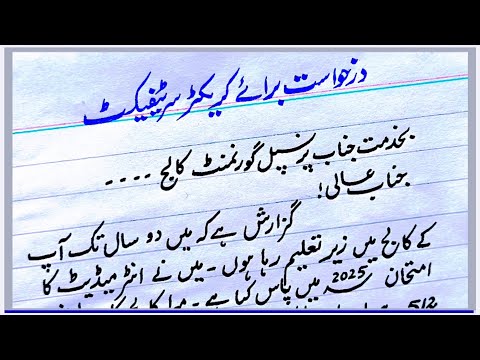 درخواست برائے کریکٹر سرٹیفیکٹ
بخدمت جناب پرنسپل گورنمنٹ کالج ۔ ۔ ۔ ۔
جناب عالی!
گزارش ہے کہ میں دو سال تک آپ
کے کالج میں زیر تعلیم رہا ہوں ۔ میں نے انٹرمیڈیٹ کا
امتحان سنہ 2025 میں پاس کیا ہے ۔ میرا
512